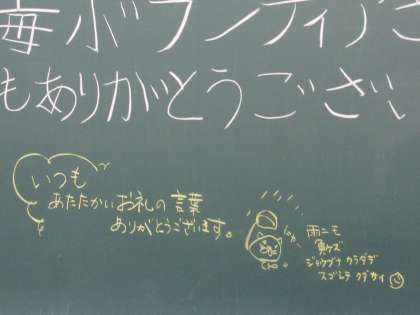 毎ボランティアご
もありがとうござい
いつも
あたたかいお礼の言葉
ありがとうございます。
雨ニモ
負ケズ
ジョウブナ カラダデ
スゴシテ クダサイ